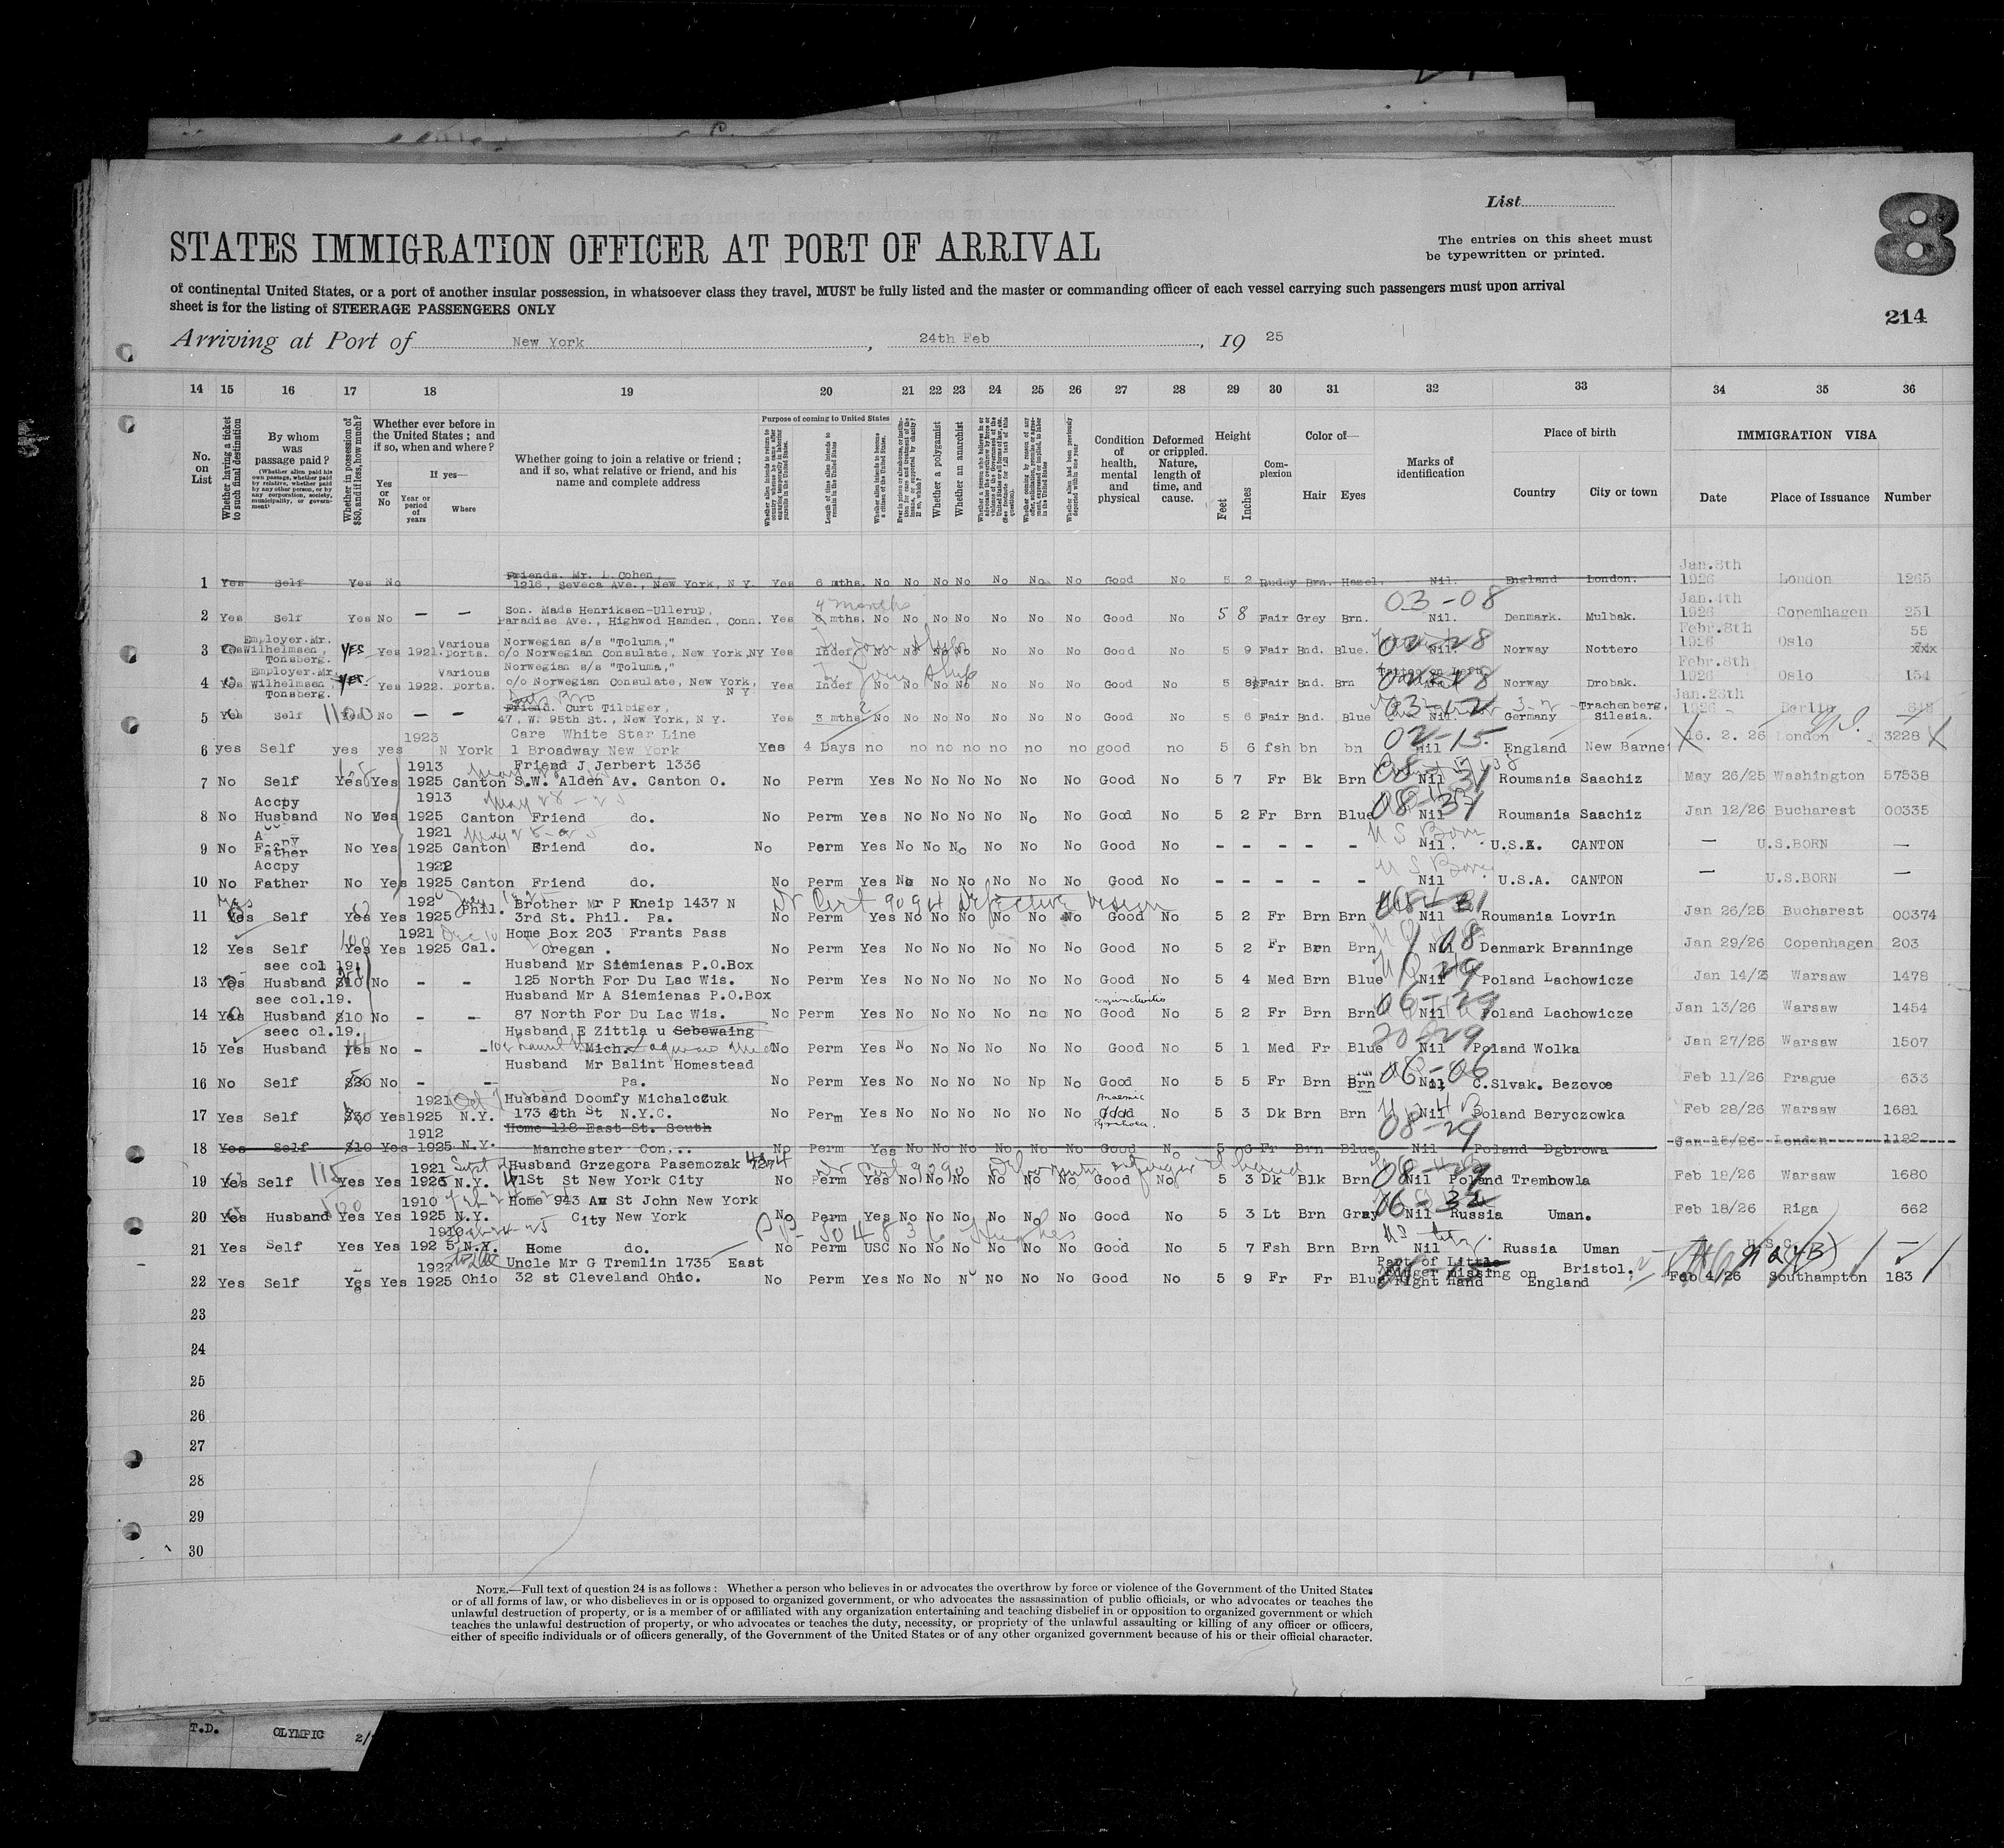 List
8
STATES IMMIGRATION OFFICER AT PORT OF ARRIVAL
The entries on this sheet must
be typewritten or printed.
of continental United States, or a port of another insular possession, in whatsoever class they travel, MUST be fully listed and the master or commanding officer of each vessel carrying such passengers must upon arrival
sheet is for the listing of STEERAGE PASSENGERS ONLY
214
Arriving at Port of New York, 24th Feb, 19 25
14 15 16 17 18 19 20 21 22 23 24 25 26 27 28 29 30 31 32 33 34 35 36
No. on List
Whether having a ticket to such final destination
By whom was passage paid?
(Whether alien paid his own passage, whether paid by relative, whether paid by any other person, or by any corporation, society, municipality, or government)
Whether in possession of $50, and if less, how much?
Whether ever before in the United States; and if so, when and where?
Yes or No
If yes—
Year or period of years
Where
Whether going to join a relative or friend; and if so, what relative or friend, and his name and complete address
Purpose of coming to United States
Length of time alien intends to remain in the United States
Whether alien intends to become a citizen of the United States
Whether a polygamist
Whether an anarchist
Condition of health, mental and physical
Deformed or crippled. Nature, length of time, and cause.
Height
Feet Inches
Complexion
Color of—
Hair Eyes
Marks of identification
Place of birth
Country City or town
IMMIGRATION VISA
Date Place of Issuance Number
1 Yes Self Yes No Friends. Mr. L. Cohen, 1216, Seveca Ave., New York, N Y. Yes 6 mths. No No No No No No No Good No 5 2 Rudey Brn. Hazel. Nil. England London. Jan.8th 1926 London 1265
2 Yes Self Yes No — — Son. Mads Henriksen-Ullerup, Paradise Ave., Highwod Hamden, Conn. Yes 4 months mths. No No No No No No No Good No 5 8 Fair Grey Brn. 03-08 Nil. Denmark. Mulbak. Jan.4th 1926 Copemhagen 251
3 Yes Employer.Mr. Wilhelmsen, Tonsberg. YES Yes 1921. Various ports. Norwegian s/s "Toluma," c/o Norwegian Consulate, New York,NY Yes Indef No No No No No No No Good No 5 9 Fair Bnd. Blue. Nil Norway Nottero Febr.8th 1926 Oslo 55
4 Yes Employer.Mr. Wilhelmsen, Tonsberg. Yes Yes 1922. Various ports. Norwegian s/s "Toluma," c/o Norwegian Consulate, New York, N Y Yes Indef No No No No No No No Good No 5 8½ Fair Bnd. Brn Norway Drobak. Febr.8th 1926 Oslo 154
5 Yes Self 1100 Yes No — — Friend. Curt Tilbiger, 47, W. 95th St., New York, N Y. Yes 3 mths No No No No No No No Good No 5 6 Fair Bnd. Blue 03-12 Nil. Germany Trachenberg, Silesia. Jan.28th 1926 Berlin 848
6 yes Self yes yes 1923 N York Care White Star Line 1 Broadway New York Yes 4 Days no no no no no no no good no 5 6 fsh bn bn 02-15. nil England New Barnet 16. 2. 26 London 3228
7 No Self Yes Yes 1913 1925 Canton Friend J Jerbert 1336 S.W. Alden Av. Canton O. No Perm Yes No No No No No No Good No 5 7 Fr Bk Brn Nil Roumania Saachiz May 26/25 Washington 57538
8 No Accpy Husband No Yes 1913 1925 Canton Friend do. No Perm Yes No No No No No No Good No 5 2 Fr Brn Blue Nil Roumania Saachiz Jan 12/26 Bucharest 00335
9 No Father No Yes 1921 1925 Canton Friend do. No Perm Yes No No No No No No Good No - - - - - U S Born Nil. U.S.A. CANTON — U.S.BORN —
10 No Accpy Father No Yes 1922 1925 Canton Friend do. No Perm Yes No No No No No No Good No - - - - - U S Born Nil U.S.A. CANTON — U.S.BORN —
11 Yes Self Yes Yes 1925 Phil. Brother Mr P Kneip 1437 N 3rd St. Phil. Pa. Dr Cert 9094 defective vision No Perm Yes No No No No No No Good No 5 2 Fr Brn Brn Nil Roumania Lovrin Jan 26/25 Bucharest 00374
12 Yes Self 100 Yes Yes 1921 1925 Cal. Home Box 203 Frants Pass Oregan. No Perm Yes No No No No No No Good No 5 2 Fr Brn Brn Nil Denmark Branninge Jan 29/26 Copenhagen 203
13 Yes see col 19. Husband $10 No - - Husband Mr Siemienas P.O.Box 125 North For Du Lac Wis. No Perm Yes No No No No No No Good No 5 4 Med Brn Blue Nil Poland Lachowicze Jan 14/ Warsaw 1478
14 Yes see col.19. Husband $10 No - - Husband Mr A Siemienas P.O.Box 87 North For Du Lac Wis. No Perm Yes No No No No no No Good No 5 2 Fr Brn Brn Nil Poland Lachowicze Jan 13/26 Warsaw 1454
15 Yes seec ol.19. Husband Yes No - - Husband E Zittla u Sebewaing Mich. No Perm Yes No No No No No No Good No 5 1 Med Fr Blue Nil Poland Wolka Jan 27/26 Warsaw 1507
16 No Self $20 No - - Husband Mr Balint Homestead Pa. No Perm Yes No No No No No No Good No 5 5 Fr Brn Brn 06-06 Nil C.Slvak. Bezovce Feb 11/26 Prague 633
17 Yes Self $30 Yes 1921 1925 N.Y. Husband Doomfy Michalczuk 173 4th St N.Y.C. No Perm Yes No No No No No No Anaemic Good No 5 3 Dk Brn Brn Nil Poland Beryczowka Feb 28/26 Warsaw 1681
18 Yes Self $10 Yes 1912 1925 N.Y. Home 118 East St. South Manchester Con... No Perm Yes No No No No No No Good No 5 6 Fr Brn Blue 08-29 Nil Poland Dgbrowa Jan 15/26 London 1122
19 Yes Self 115 Yes Yes 1921 1925 N.Y. Husband Grzegora Pasemozak 71St St New York City No Perm Yes No No No No No No Good No 5 3 Dk Blk Brn 08-29 Nil Poland Trembowla Feb 18/26 Warsaw 1680
20 Yes Husband Yes Yes 1910 1925 N.Y. Home 943 Av St John New York City New York No Perm Yes No No No No No No Good No 5 3 Lt Brn Gray Nil Russia Uman. Feb 18/26 Riga 662
21 Yes Self Yes Yes 1910 1925 N.Y. Home do. No Perm USC No No No No No No Good No 5 7 Fsh Brn Brn Nil Russia Uman U.S.C. —
22 Yes Self Yes Yes 1922 1925 Ohio Uncle Mr G Tremlin 1735 East 32 st Cleveland Ohio. No Perm Yes No No N No No No Good No 5 9 Fr Fr Blue Part of Little Finger missing on Right Hand Bristol. England Feb 4/26 Southampton 183
23
24
25
26
27
28
29
30
NOTE.—Full text of question 24 is as follows: Whether a person who believes in or advocates the overthrow by force or violence of the Government of the United States
or of all forms of law, or who disbelieves in or is opposed to organized government, or who advocates the assassination of public officials, or who advocates or teaches the
unlawful destruction of property, or is a member of or affiliated with any organization entertaining and teaching disbelief in or opposition to organized government or which
teaches the unlawful destruction of property, or who advocates or teaches the duty, necessity, or propriety of the unlawful assaulting or killing of any officer or officers,
either of specific individuals or of officers generally, of the Government of the United States or of any other organized government because of his or their official character.
T.D. OLYMPIC 2/